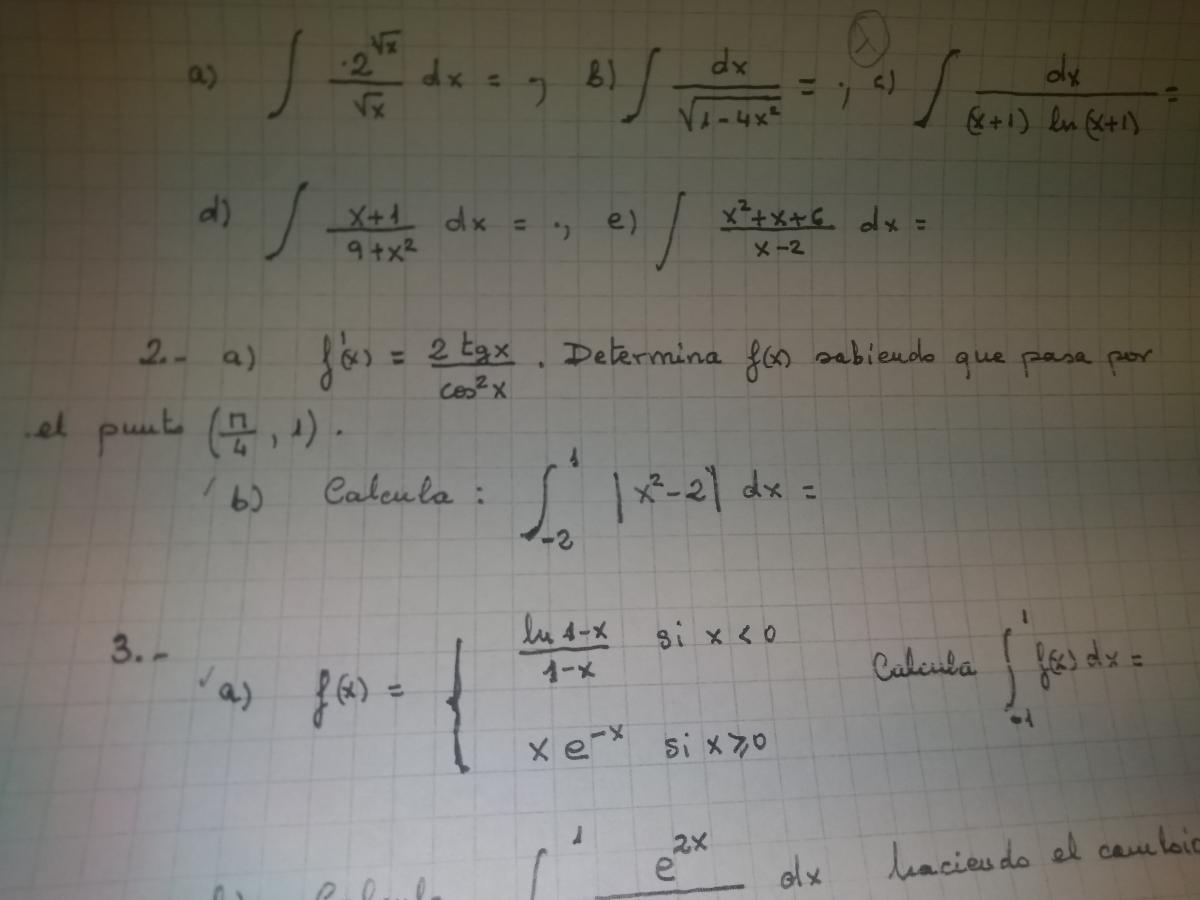 a) ∫ 2^√x / √x dx = ; b) ∫ dx / √(1-4x²) = ; c) ∫ dx / (x+1) ln(x+1) =
d) ∫ x+1 / 9+x² dx = ; e) ∫ x²+x+6 / x-2 dx =
2.- a) f'(x) = 2 tgx / cos²x . Determina f(x) sabiendo que pasa por
el punto (π/4, 1).
b) Calcula: ∫_{-2}^{1} |x²-2| dx =
3.-
a) f(x) = { ln 1-x / 1-x si x < 0 Calcula ∫_{-1}^{1} f(x) dx =
x e^{-x} si x ≥ 0
b) Calcula ∫^{1} e^{2x} / dx haciendo el cambio